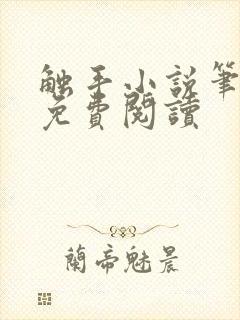 触手小说笔
免費閱讀
蘭帝魅晨